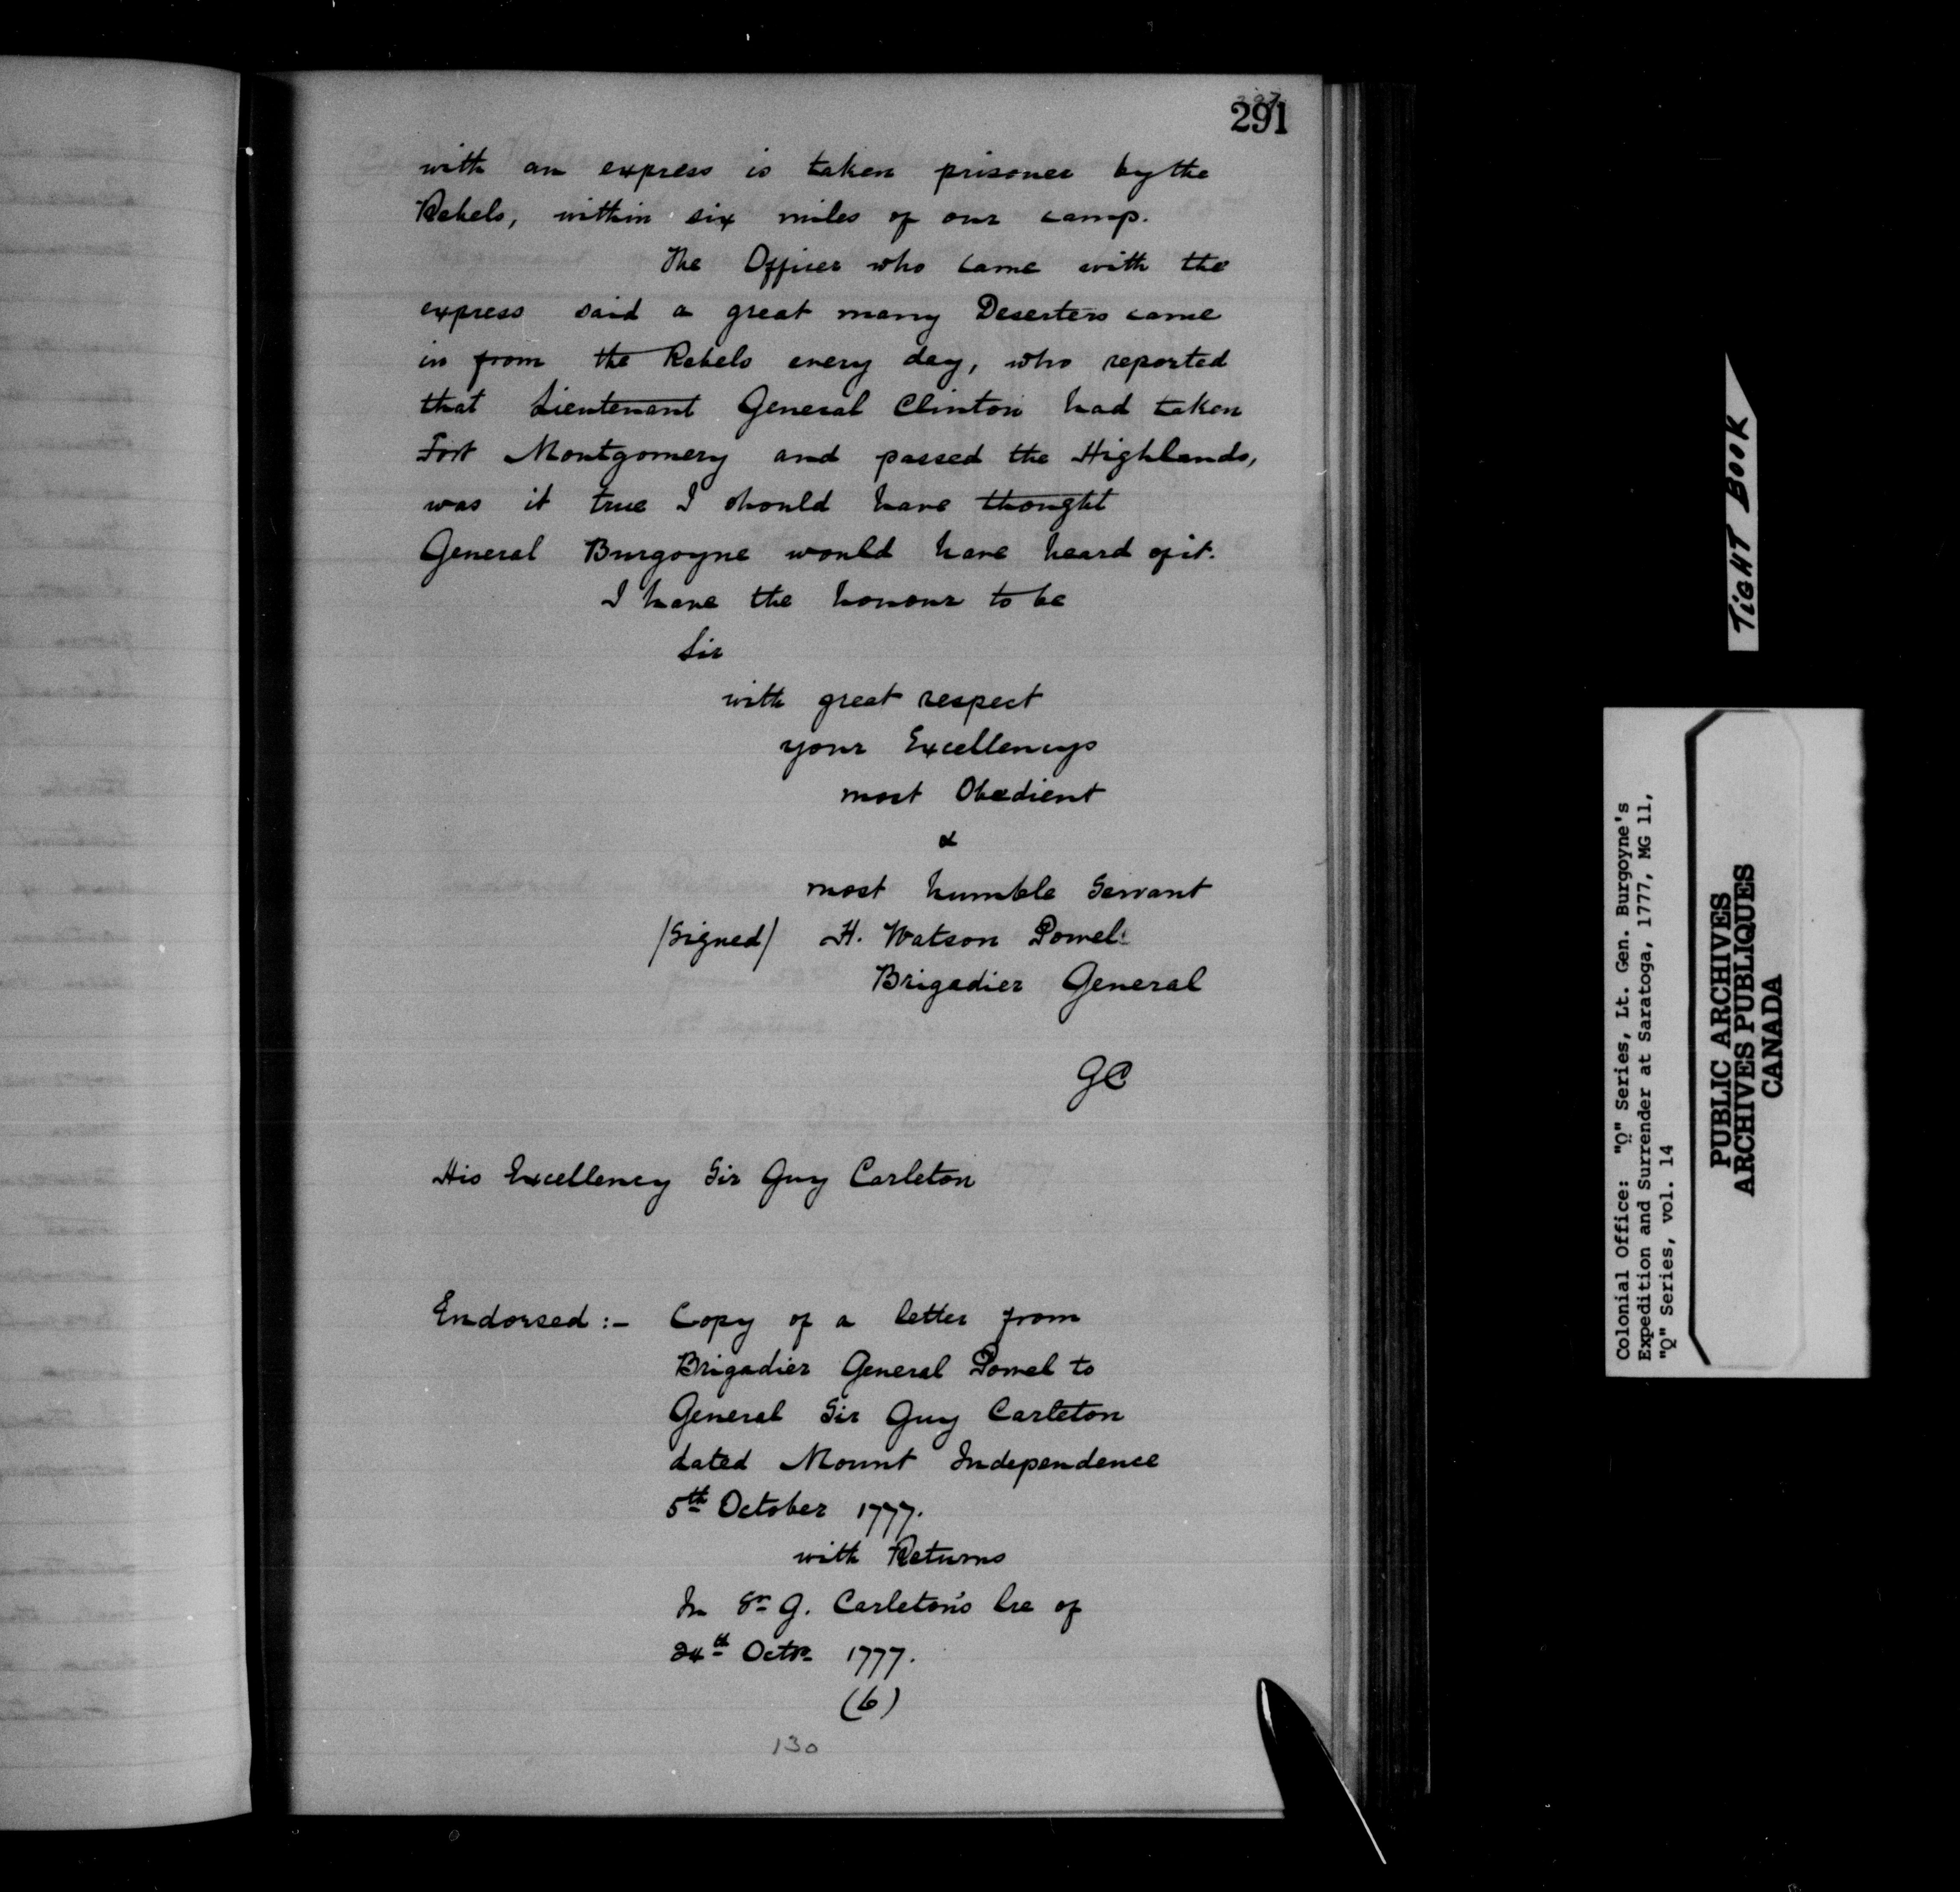 291
with an express is taken prisoner by the
Rebels, within six miles of our camp.
The Officer who came with the
express said a great many Deserters came
in from the Rebels every day, who reported
that Lieutenant General Clinton had taken
Fort Montgomery and passed the Highlands,
was it true I should have thought
General Burgoyne would have heard of it.
I have the honour to be
Sir
with great respect
your Excellencys
most Obedient
&
most humble Servant
/Signed/ H. Watson Powel
Brigadier General
GC
His Excellency Sir Guy Carleton
Endorsed :- Copy of a letter from
Brigadier General Powel to
General Sir Guy Carleton
dated Mount Independence
5th October 1777.
with Returns
In Sr G. Carleton's lre of
24th Octr 1777.
(6)
130
TIGHT BOOK
Colonial Office: "Q" Series, Lt. Gen. Burgoyne's
Expedition and Surrender at Saratoga, 1777, MG 11,
"Q" Series, vol. 14
PUBLIC ARCHIVES
ARCHIVES PUBLIQUES
CANADA